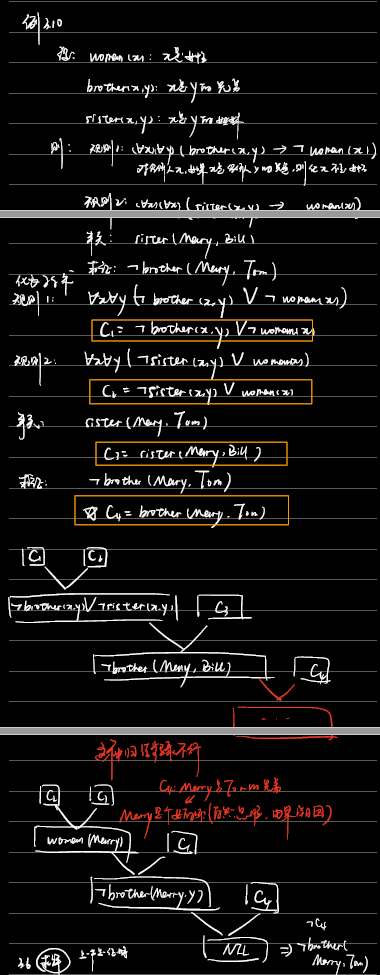 例3.10
设: woman(x): x是女性
brother(x,y): x是y的兄弟
sister(x,y): x是y的姐妹
则: 规则1: (∀x)(∀y)(brother(x,y) → ¬woman(x))
对任何人x,如果x是
规则2: (∀x)(∀x)(sister(x,y) → woman(x))
事实: sister(Merry, Bill)
求证: ¬brother(Merry, Tom)
化为子句集
规则1: ∀x∀y(¬brother(x,y) ∨ ¬woman(x))
C₁ = ¬brother(x,y) ∨ ¬woman(x)
规则2: ∀x∀y(¬sister(x,y) ∨ woman(x))
C₂ = ¬sister(x,y) ∨ woman(x)
事实: sister(Merry, Tom)
C₃ = sister(Merry, Bill)
求证: ¬brother(Merry, Tom)
C₄ = brother(Merry, Tom)
C₁ C₂
¬brother(x,y) ∨ ¬sister(x,y) C₃
¬brother(Merry, Bill) C₄
...
这种归结不行
C₄: Merry是Tom的兄弟
Merry是个女的
C₂ C₃
woman(Merry) C₁
¬brother(Merry, y) C₄
NIL ⇒ ¬C₄
¬brother(Merry, Tom)
3.6